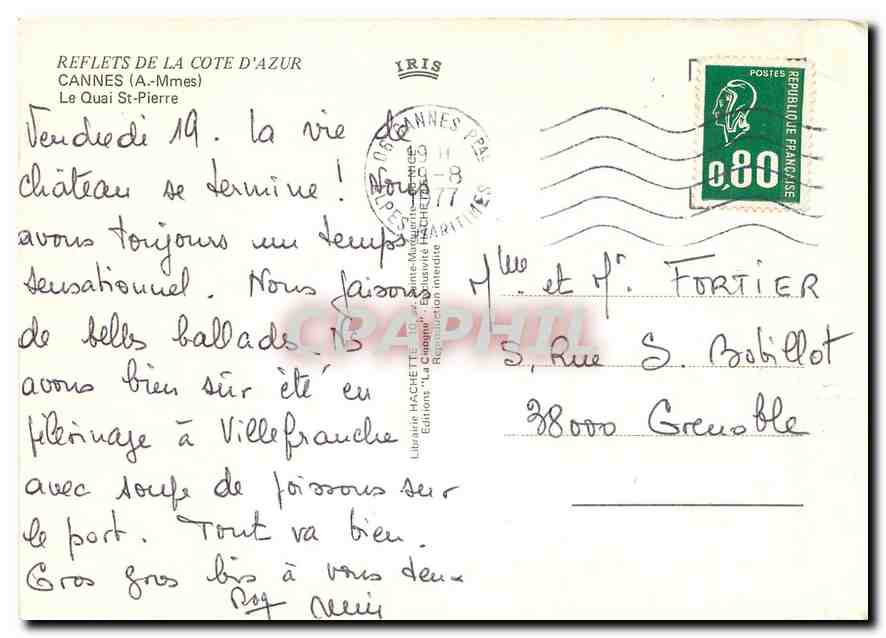 REFLETS DE LA COTE D'AZUR
CANNES (A.-Mmes)
Le Quai St-Pierre
IRIS
Vendredi 19. La vie de
château se termine ! Nous
avons toujours un temps
sensationnel. Nous faisons
de belles ballades. Ns
avons bien sûr été en
pèlerinage à Villefranche
avec soupe de poissons sur
le port. Tout va bien.
Gros gros bis à vous deux
Librairie HACHETTE - 10, av. Sainte-Marguerite - Nice
Editions "La Cigogne" - Exclusivité HACHETTE
Reproduction interdite
06 CANNES PPAL
19 H
19-8
1977
ALPES MARITIMES
POSTES
REPUBLIQUE FRANÇAISE
0,80
Mme et Mr. FORTIER
5, Rue S. Bobillot
38000 Grenoble
CPAPHIL